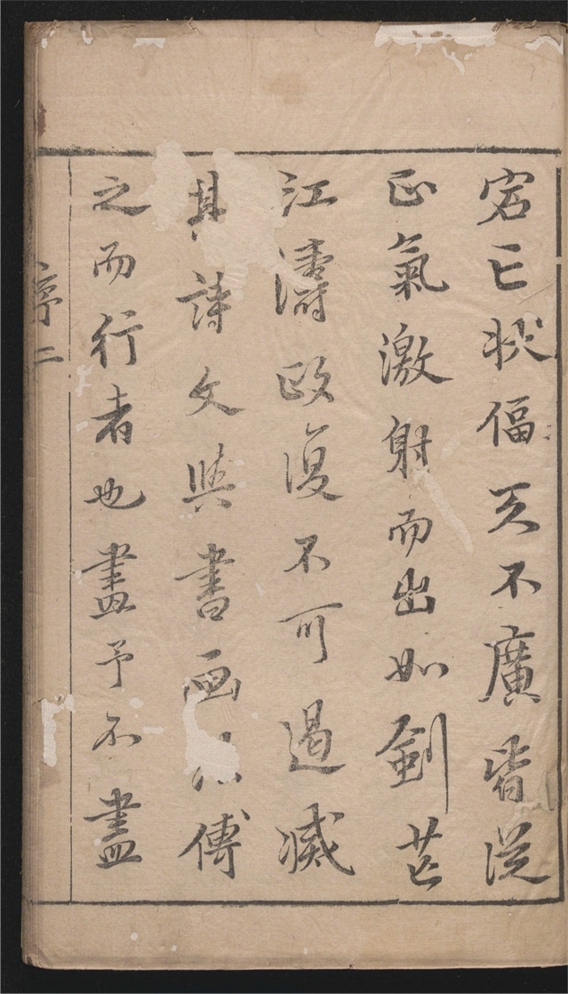 已状偪天不廣皆從
正氣激射而出如劍芒
江濤政復不可遏滅
其詩文與書画傳
之而行者也畫予不盡
序二